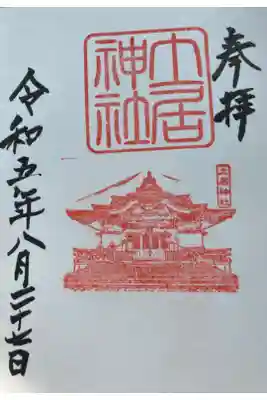 奉拝
土居神社
土居神社
令和五年八月二十七日